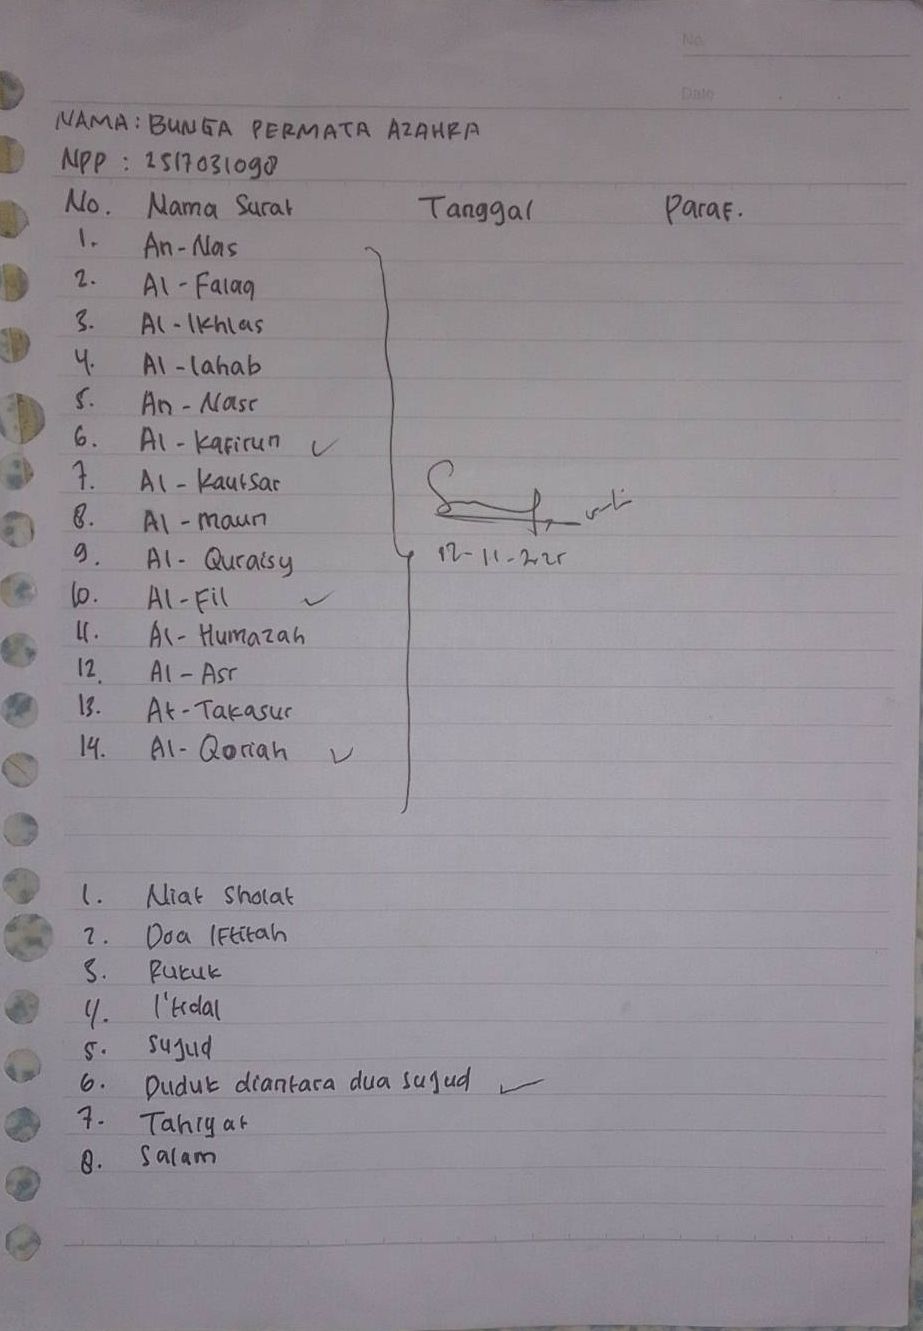 No.
Date
NAMA : BUNGA PERMATA AZAHRA
NPP : 2517031098
No. Nama Surat Tanggal Paraf.
1. An-Nas
2. Al-Falaq
3. Al-Ikhlas
4. Al-lahab
5. An-Nasr
6. Al-Kafirun ✓
7. Al-Kautsar
8. Al-maun
9. Al-Quraisy
12-11-2025
10. Al-Fil ✓
11. Al-Humazah
12. Al-Asr
13. At-Takasur
14. Al-Qoriah ✓
1. Niat Sholat
2. Doa Iftitah
3. Rukuk
4. I'tidal
5. Sujud
6. Duduk diantara dua sujud ✓
7. Tahiyat
8. Salam